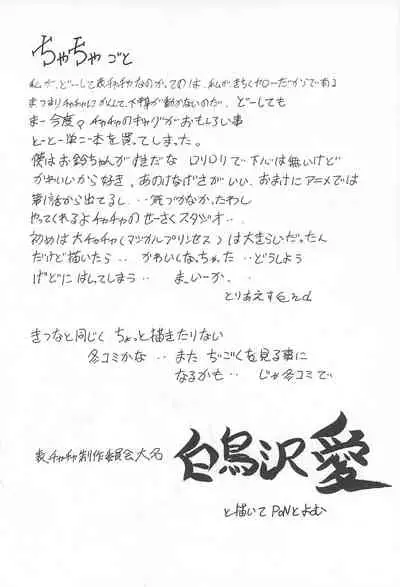 ちゃちゃごと
私が、どーして表チャチャなのかってのは、私がきちくヤローだからである
まつまりチャチャにかんして、下半身が動かないのだ、どーしても
まー今度のチャチャのギャグがおもしろい事
とーとー単こー本を買ってしまった。
僕はお鈴ちゃんが好きだな ロリロリで下心は無いけど
かわいいから好き。あのけなげさがいい、おまけにアニメでは
第1話から出てるし、‥気づかなかったわし
やってくれるよチャチャのせーさくスタジオ‥.
初めは大チャチャ(マジカルプリンセス)は大きらいだったん
だけど描いたら‥ かわいくなっちゃった‥どうしよう
げどにはしってしまう‥ ま、いーか、‥
とりあえずEnd
きつなと同じく ちょっと描きたりない
冬コミかな‥ また ぢごくを見る事に
なるかも‥ じゃ冬コミで
表チャチャ制作委員会大名
白鳥沢愛
と描いてPoNとよむ